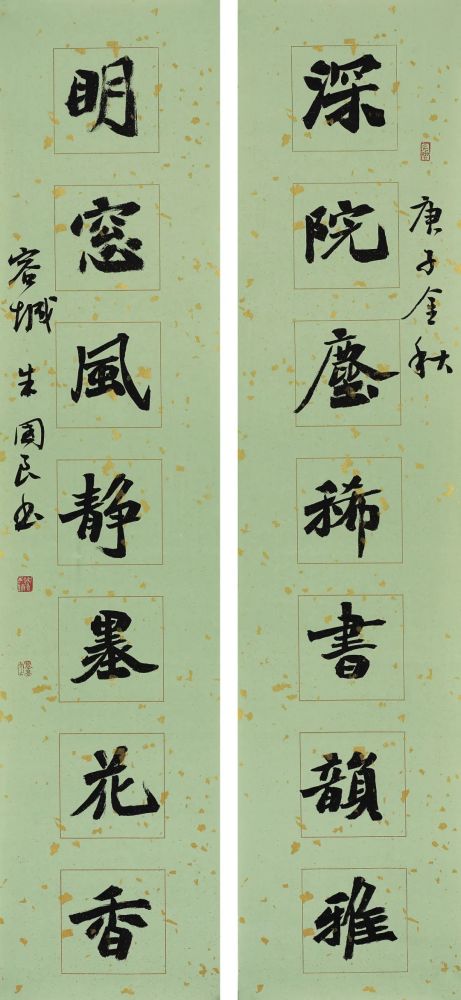 深院塵稀書韻雅
庚子金秋
明窓風静墨花香
容城朱国良书